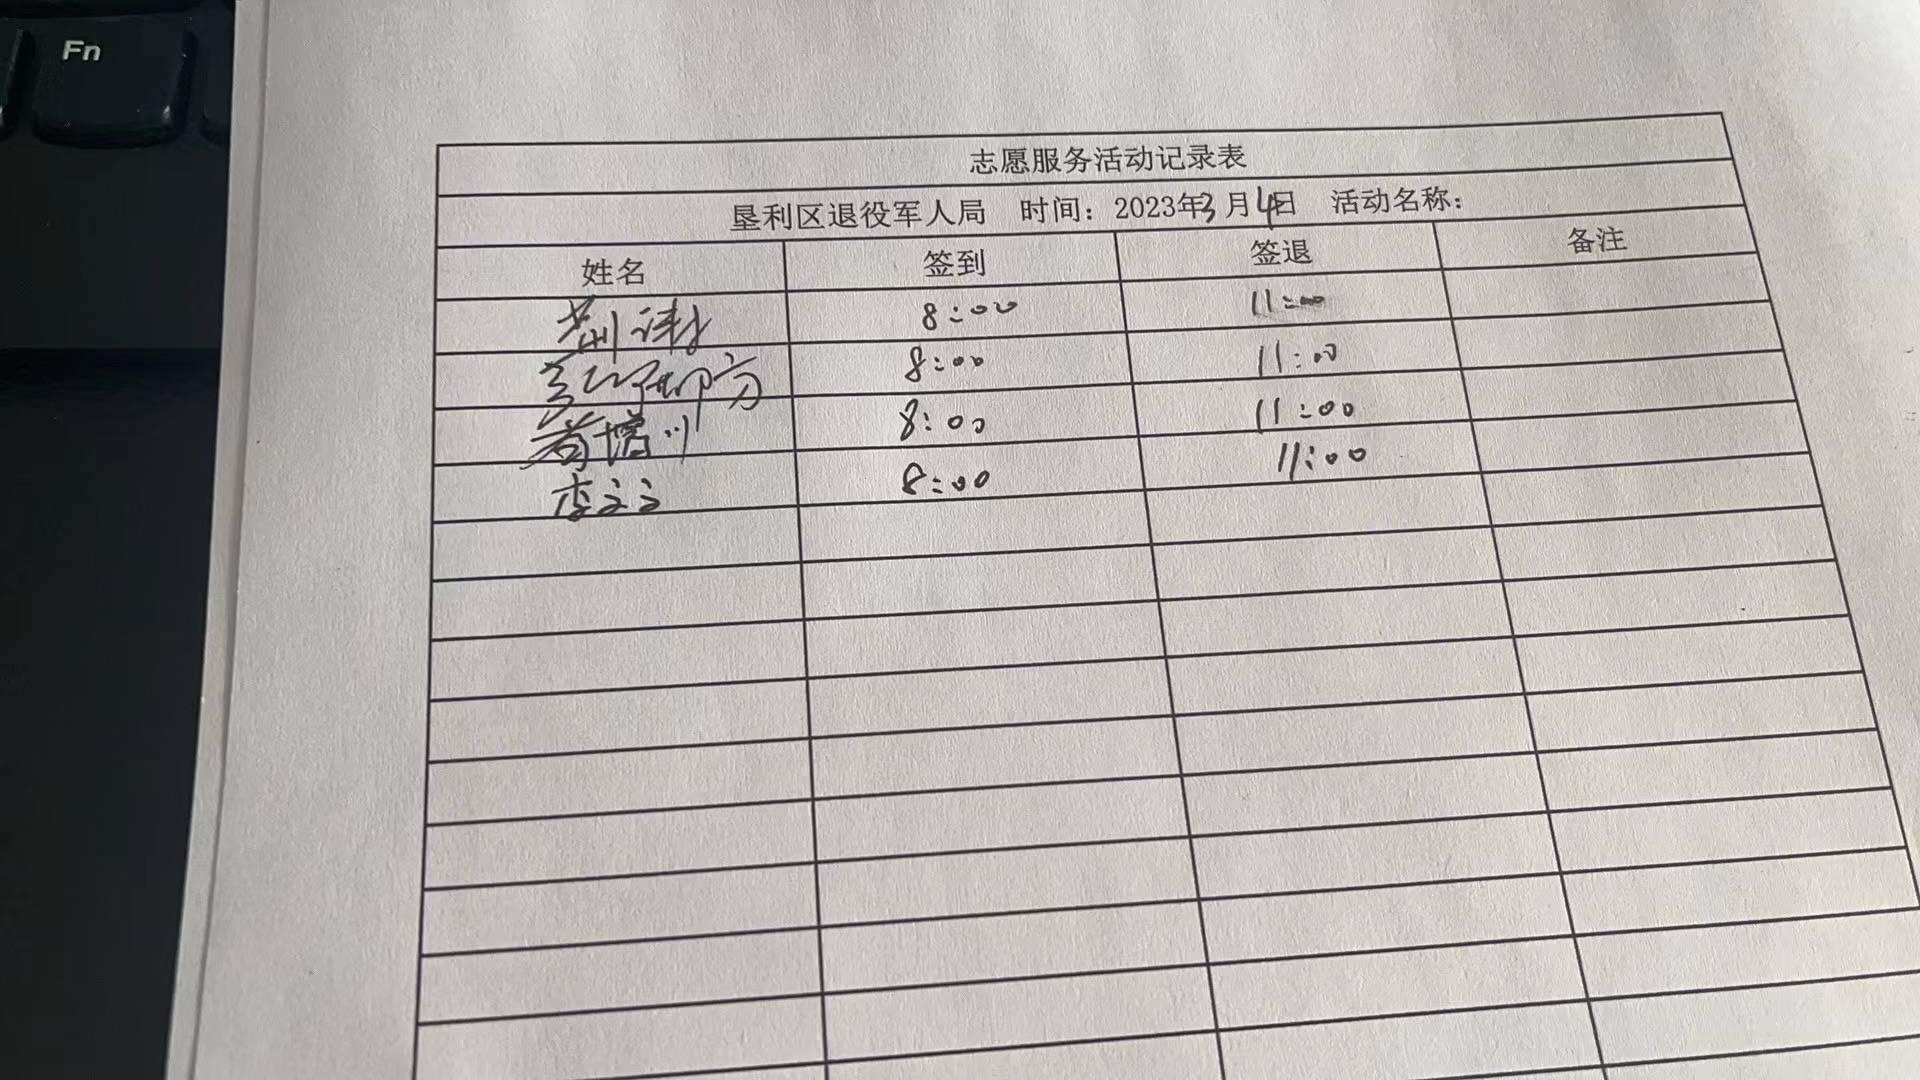 Fn
志愿服务活动记录表
垦利区退役军人局 时间：2023年3月4日 活动名称：
姓名 签到 签退 备注
8:00 11:00
8:00 11:00
8:00 11:00
李文文 8:00 11:00